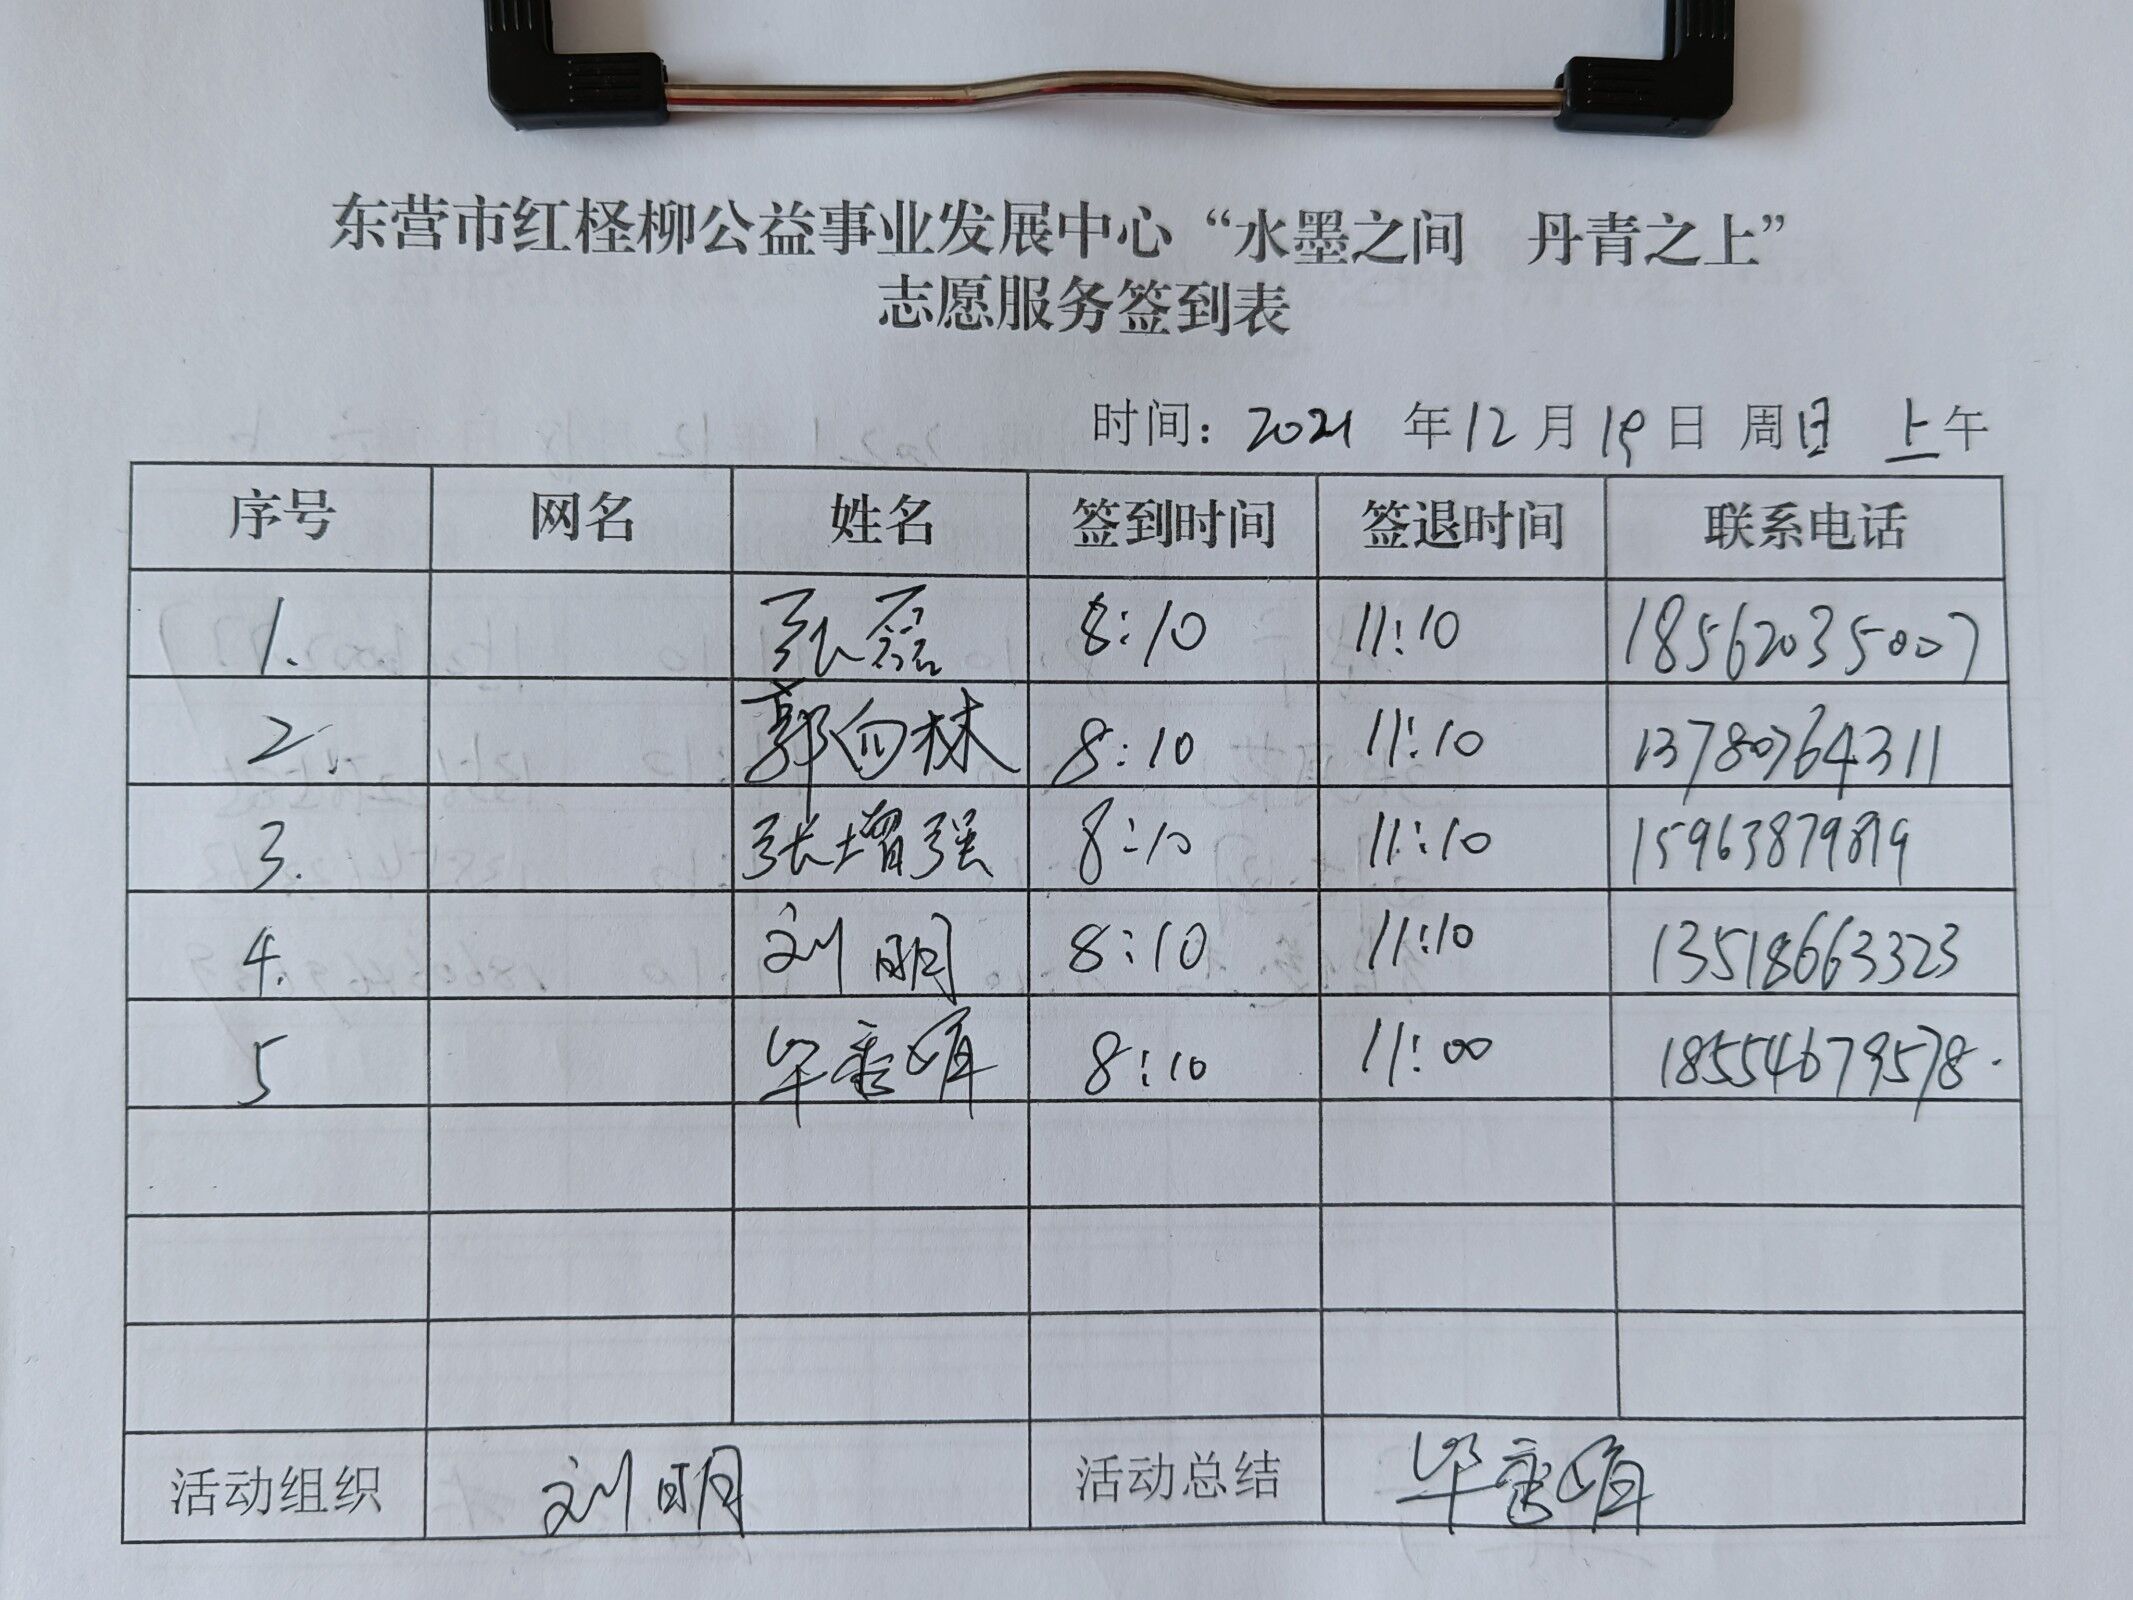 东营市红柽柳公益事业发展中心“水墨之间 丹青之上”
志愿服务签到表
时间: 2021 年 12 月 19 日 周日 上午
序号 网名 姓名 签到时间 签退时间 联系电话
1. 张磊 8:10 11:10 18562035007
2. 郭向林 8:10 11:10 13780764311
3. 张增强 8:10 11:10 15963879819
4. 刘明 8:10 11:10 13518663323
5 毕 8:10 11:00 18554679578.
活动组织 刘明 活动总结 毕